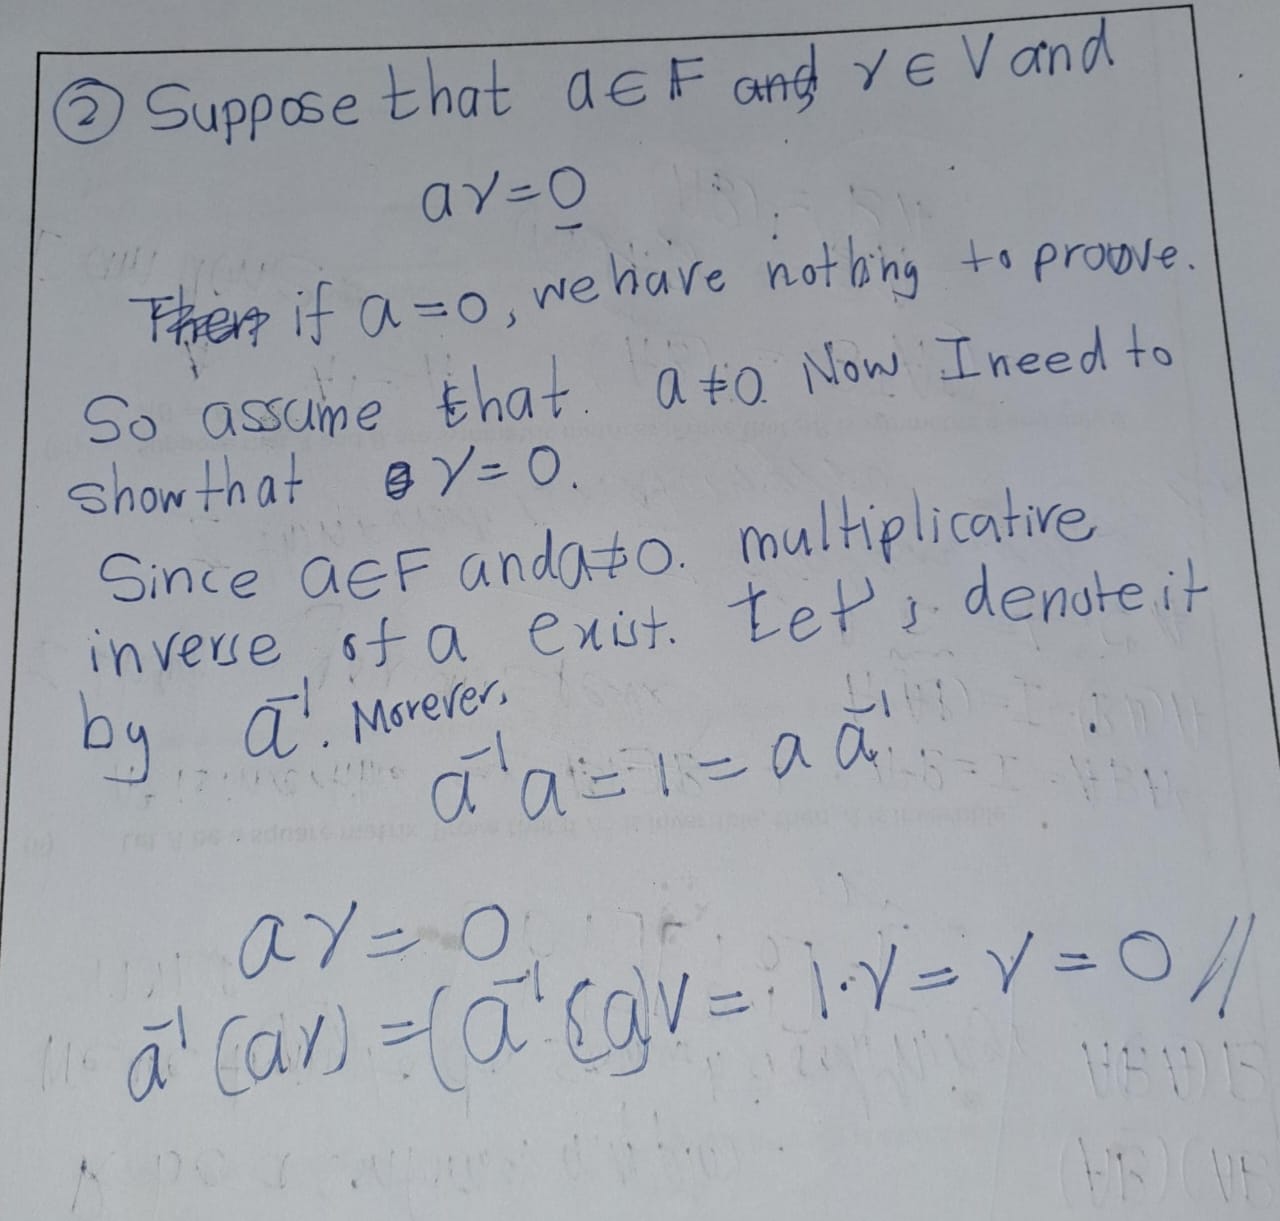 ② Suppose that a ∈ F and v ∈ V and
av = 0
Then if a = 0, we have nothing to proove.
So assume that. a ≠ 0. Now I need to
show that v = 0.
Since a ∈ F and a ≠ 0. multiplicative
inverse of a exist. Let's denote it
by a⁻¹. Morever,
a⁻¹a = 1 = a a⁻¹
av = 0
a⁻¹(av) = (a⁻¹(a)v = 1·v = v = 0 //